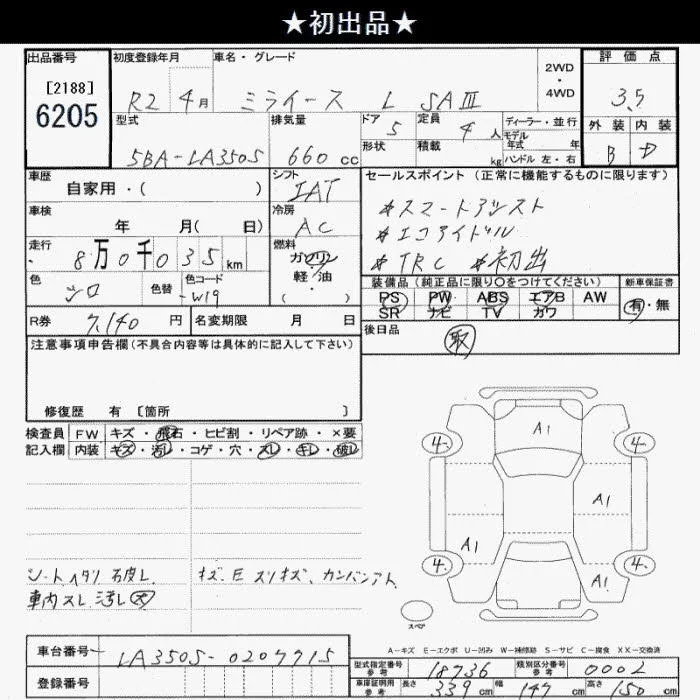 ★初出品★
出品番号 初度登録年月 車名・グレード 2WD・4WD 評価点
[2188]
6205
R2 4月 ミライース L SAⅢ 3.5
型式 排気量 ドア 5 定員 4人 ディーラー・並行 外装 内装
モデル年式 年
5BA-LA350S 660cc 形状 積載 kg ハンドル 左・右 B D
車歴 シフト セールスポイント(正常に機能するものに限ります)
自家用・( ) IAT
#スマートアシスト
車検 冷房 #エコアイドル
年 月( 日) AC
#TRC #初出
走行 8万0千035km 燃料 ガソリン
軽・油
( )
装備品(純正品に限り〇をつけてください) 新車保証書
色 シロ 色替 色コード W19
PS PW ABS エアB AW 有・無
SR ナビ TV カワ
R券 7,140円 名変期限 月 日
後日品
取
注意事項申告欄(不具合内容等は具体的に記入して下さい)
修復歴 有 [箇所 ]
検査員 FW キズ・飛石・ヒビ割・リペア跡・×要
記入欄 内装 キズ・汚レ・コゲ・穴・スレ・キレ・破レ
A1
4- 4-
A1
A1
4- 4-
A1
シートヘタリ 破レ キズ、E スリキズ、カンバンアト
車内スレ 汚レ 大
スペア
A-キズ E-エクボ U-凹み W-補修跡 S-サビ C-腐食 XX-交換済
車台番号 LA350S-0207715
型式指定番号 参考 18736 類別区分番号 参考 0002
登録番号
車庫証明用 参考 長さ 339cm 幅 147cm 高さ 150cm